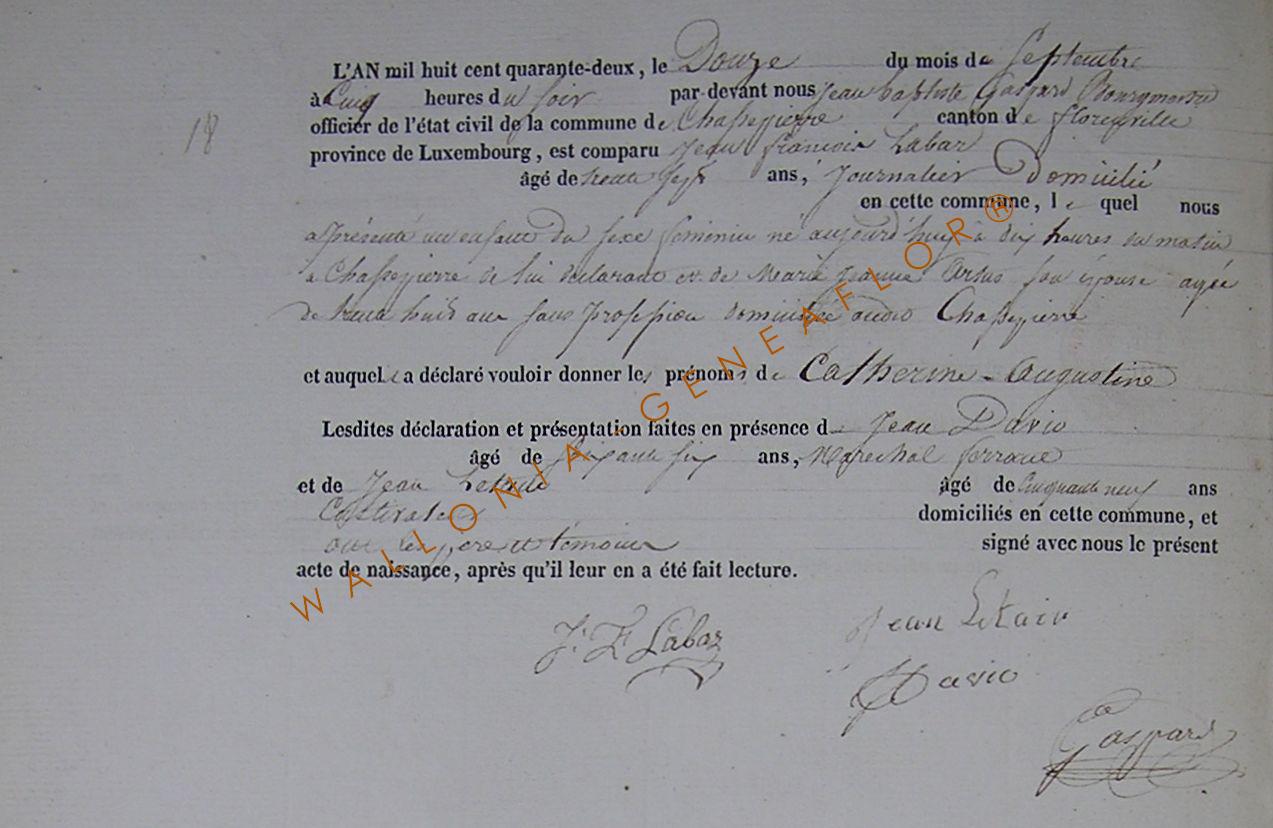 L'AN mil huit cent quarante-deux, le Douze du mois de Septembre
à Cinq heures du soir par-devant nous Jean baptiste Gaspard Bourgmestre
officier de l'état civil de la commune de Chassepierre canton de florenville
18
province de Luxembourg, est comparu Jean françois Labar
âgé de trente sept ans, Journalier Domicilié
en cette commune, le quel nous
a présenté un enfant du sexe feminin né aujourd'huy à dix heures du matin
a Chassepierre de lui declarant et de Marie Jeanne son épouse agée
de trente huit ans sans profession domiciliée audit Chassepierre
et auquel a déclaré vouloir donner les prénoms de Catherine-Augustine
Lesdites déclaration et présentation faites en présence d Jean Davio
âgé de soixante six ans, Marechal ferrant
et de Jean âgé de Cinquante neuf ans
Cultivateur domiciliés en cette commune, et
ont les pere et temoins signé avec nous le présent
acte de naissance, après qu'il leur en a été fait lecture.
J. F. Labar
Jean
Davio
Gaspard
WALLONIA-GENEAFLOR®